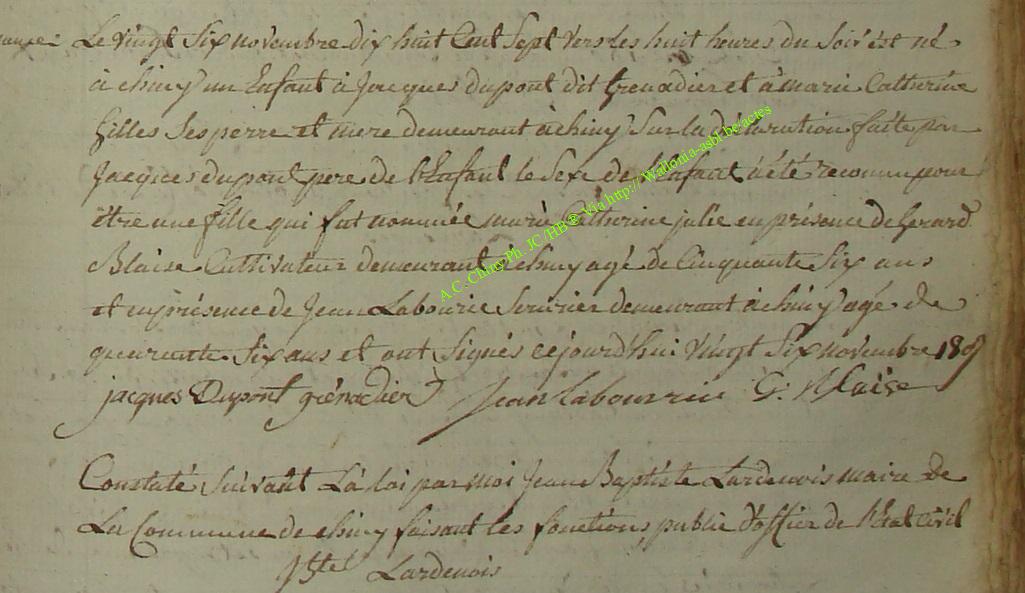 Le vingt Six novembre dix huit Cent Sept vers les huit heures du Soir est né
à chiny un Enfant à Jacques dupont dit grenadier et à marie Catherine
gilles Ses perre et mere demeurant à chiny Sur la déclaration faite par
Jacques dupont pere de l'Enfant le Sexe de l'Enfant à été reconnu pour
être une fille qui fut nommée marie Catherine julie en présence de Gerard
Blaise Cultivateur demeurant à chiny agé de Cinquante Six ans
et en présence de Jean Labourie Serurier demeurant à chiny agé de
queurente Six ans et ont Signés cejourd'hui vingt Six novembre 1807
jacques Dupont grénadier Jean Labourrie G. Blaise
Constaté Suivant La loi par moi Jean Baptiste Lardenois maire de
La Commune de chiny faisant les fonctions public d'officier de l'Etat Civil
Lardenois
A C. Chiny Ph. JC/HB ® Via http://Wallonia-asbl.be/actes